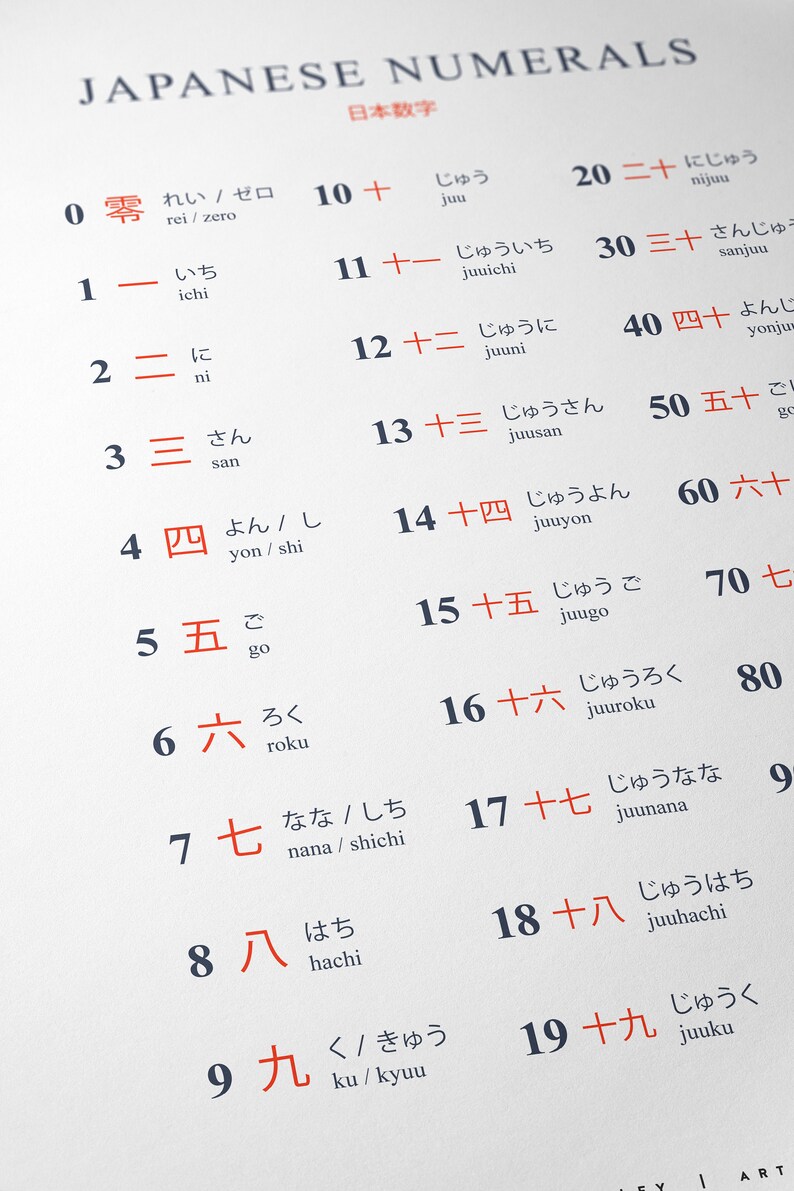 JAPANESE NUMERALS
日本数字
0 零 れい / ゼロ
rei / zero
1 一 いち
ichi
2 二 に
ni
3 三 さん
san
4 四 よん / し
yon / shi
5 五 ご
go
6 六 ろく
roku
7 七 なな / しち
nana / shichi
8 八 はち
hachi
9 九 く / きゅう
ku / kyuu
10 十 じゅう
juu
11 十一 じゅういち
juuichi
12 十二 じゅうに
juuni
13 十三 じゅうさん
juusan
14 十四 じゅうよん
juuyon
15 十五 じゅう ご
juugo
16 十六 じゅうろく
juuroku
17 十七 じゅうなな
juunana
18 十八 じゅうはち
juuhachi
19 十九 じゅうく
juuku
20 二十 にじゅう
nijuu
30 三十 さんじゅう
sanjuu
40 四十
50 五十
60 六十
70 七
80
| ART